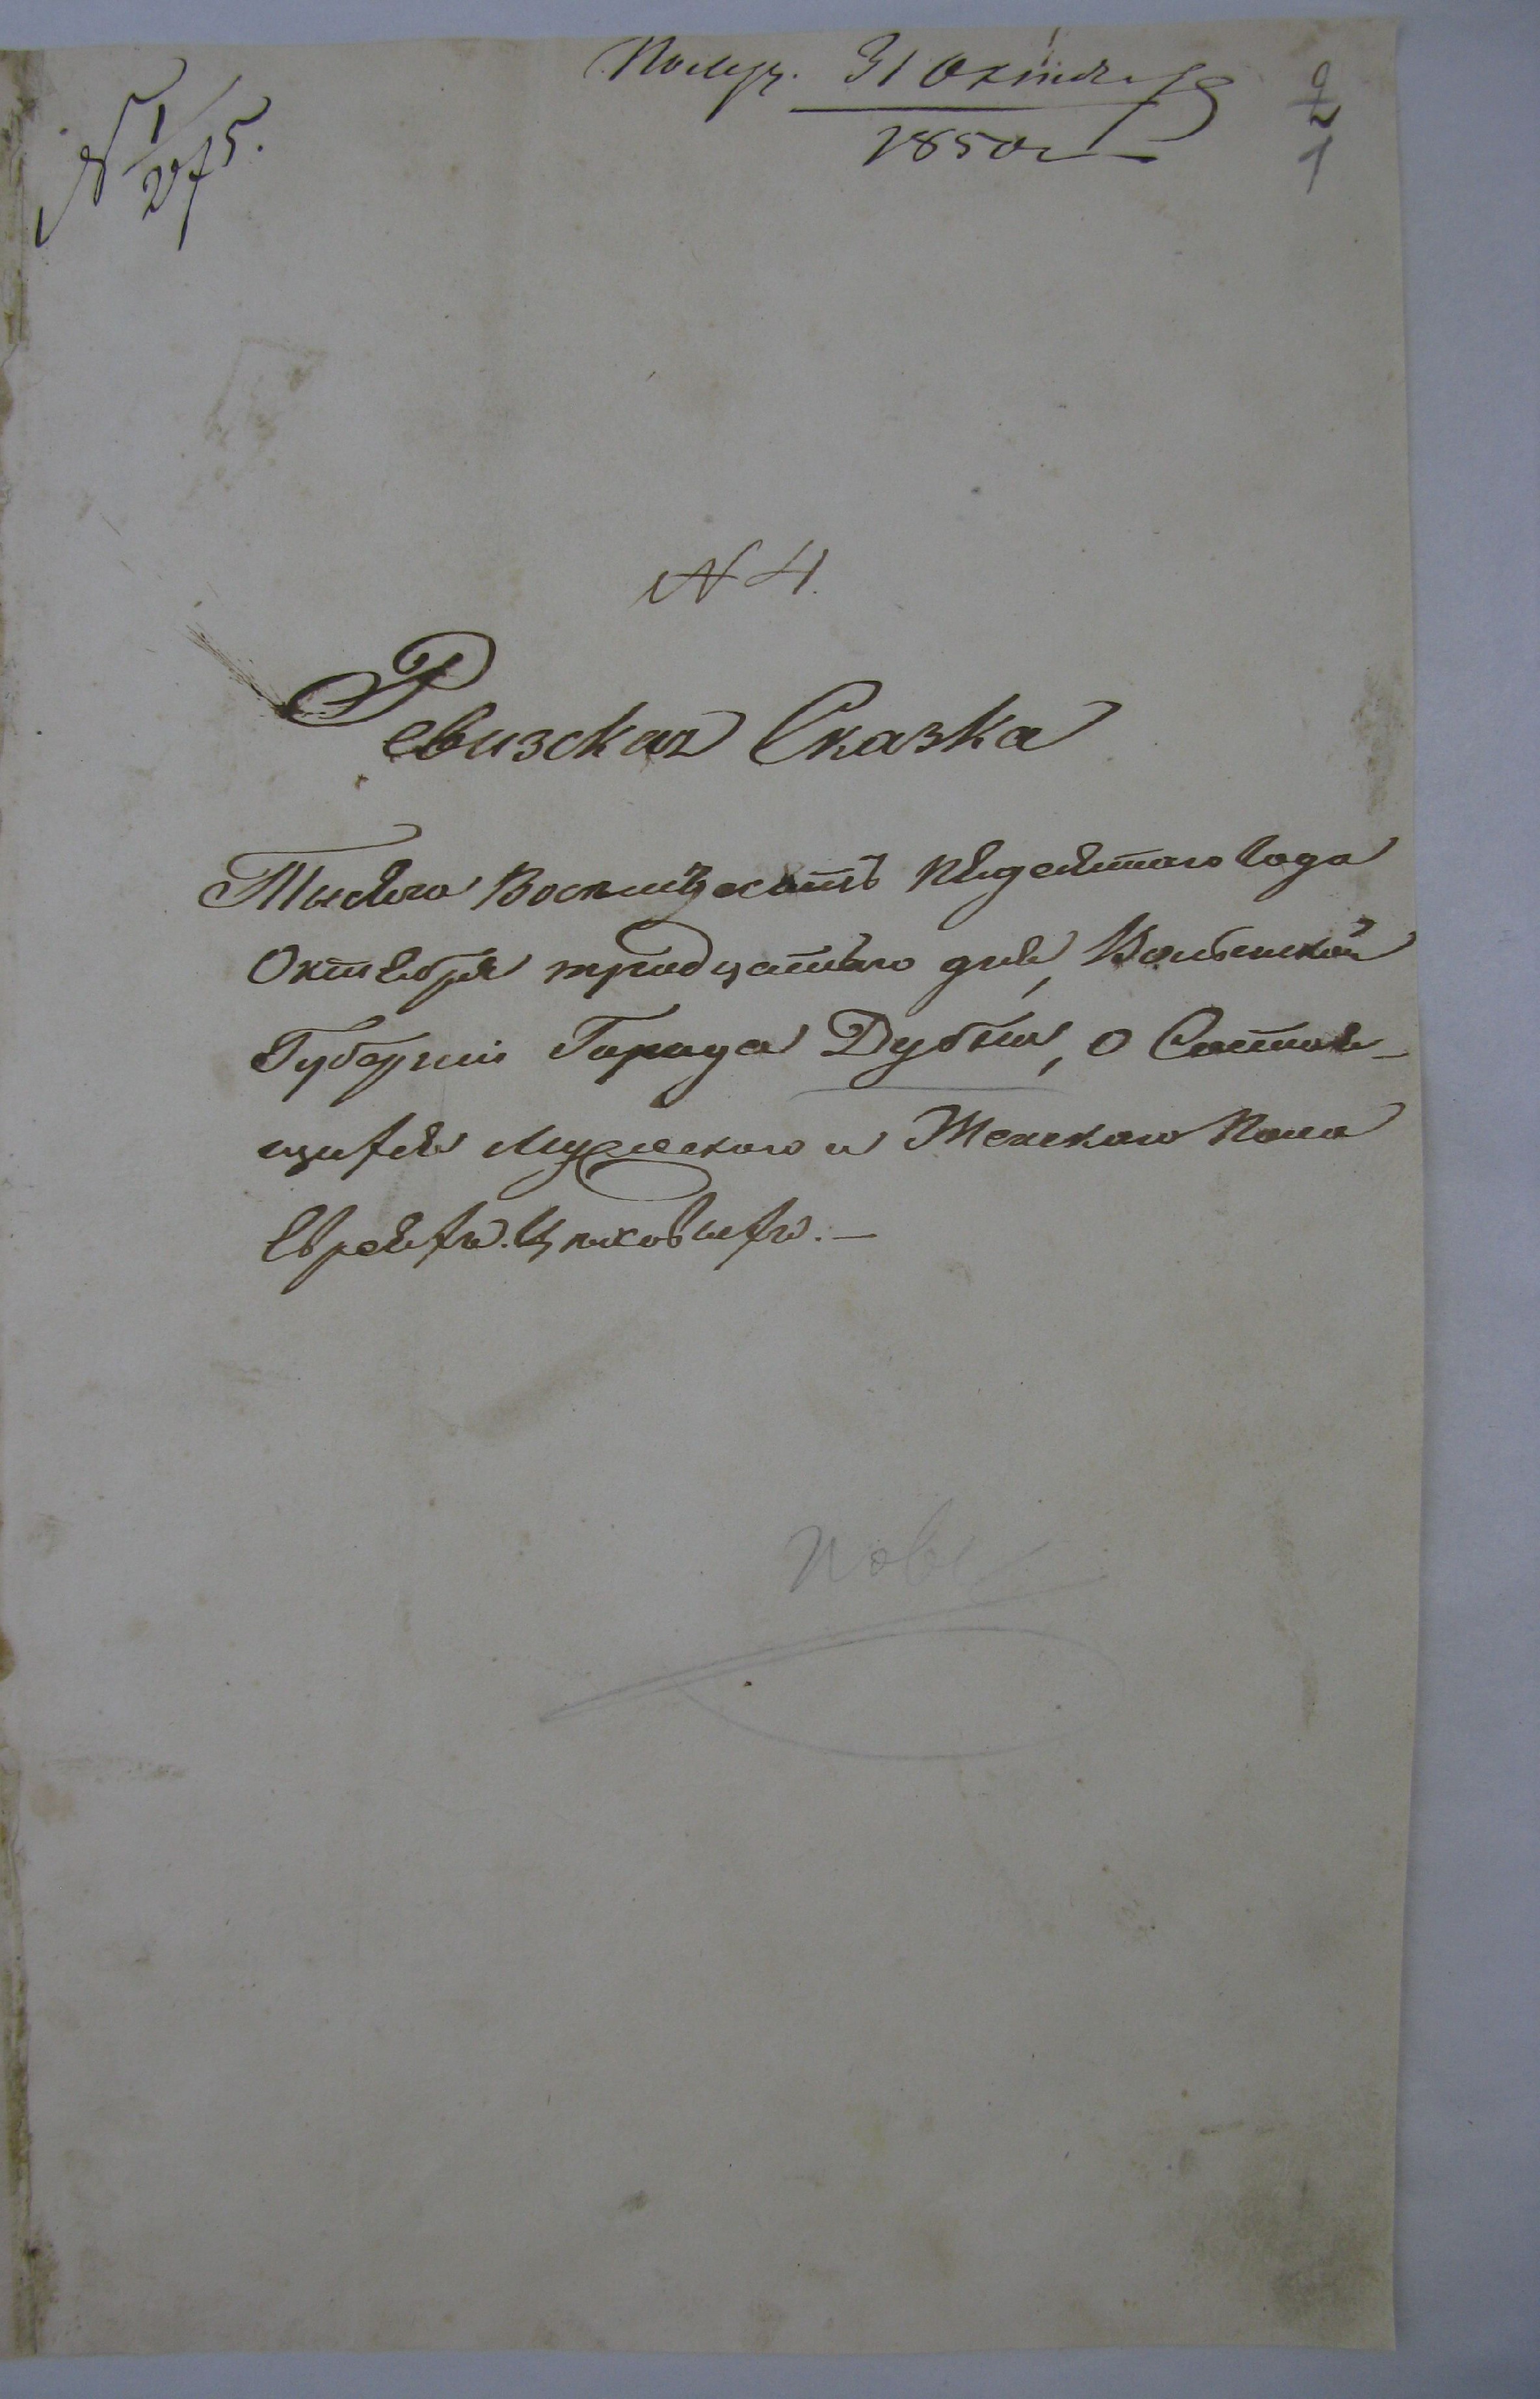 № 1/275.
Получ. 31 Октября
1850 г
2
1
№ 4.
Ревизская Сказка
Тысяча Восемъ сотъ пядесятаго Года
Октября тридцатаго дня, Волынской
Губерніи Города Дубна, о Состоя-
щихъ Мужескаго и Женскаго Пола
Евреяхъ Цѣховыхъ. —